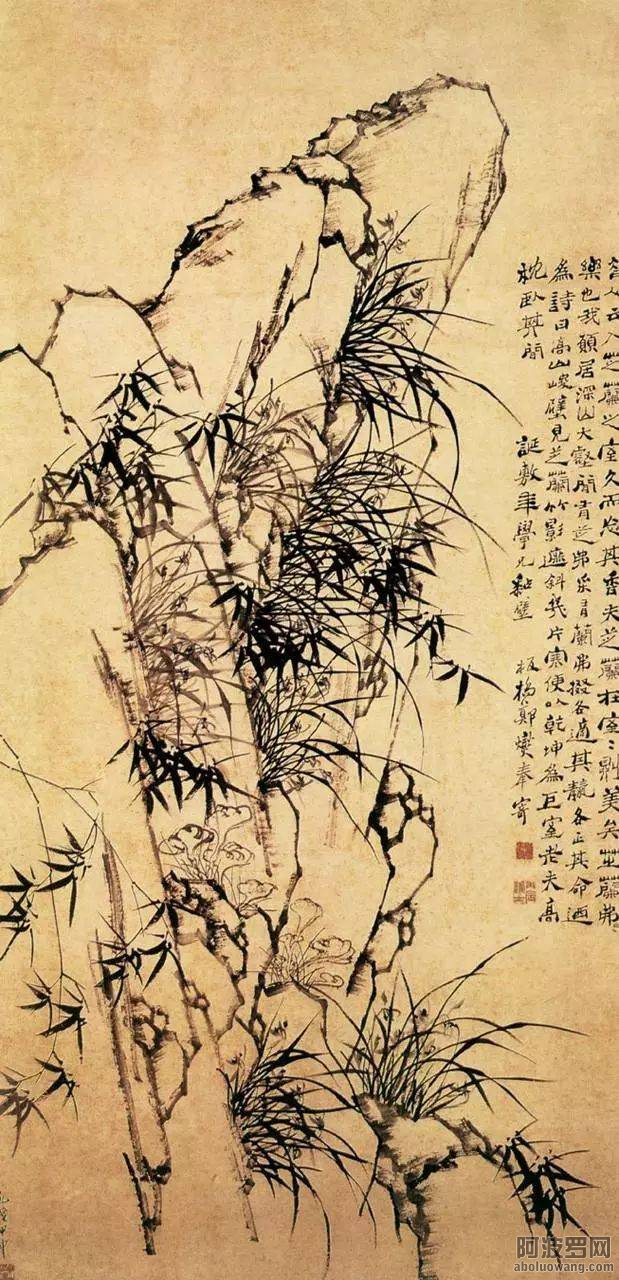 昔人云入芝蘭之室久而忘其香夫芝蘭在室〻則美矣芝蘭弗
樂也我願居深山大壑間有芝弗采有蘭弗掇各適其各正其命迺
為詩曰高山峻壁見芝蘭竹影遮斜幾片寒便以乾坤為巨室老夫高
枕臥其間 誕敷年學兄粘壁 板橋鄭燮奉寄
阿波罗网
aboluowang.com